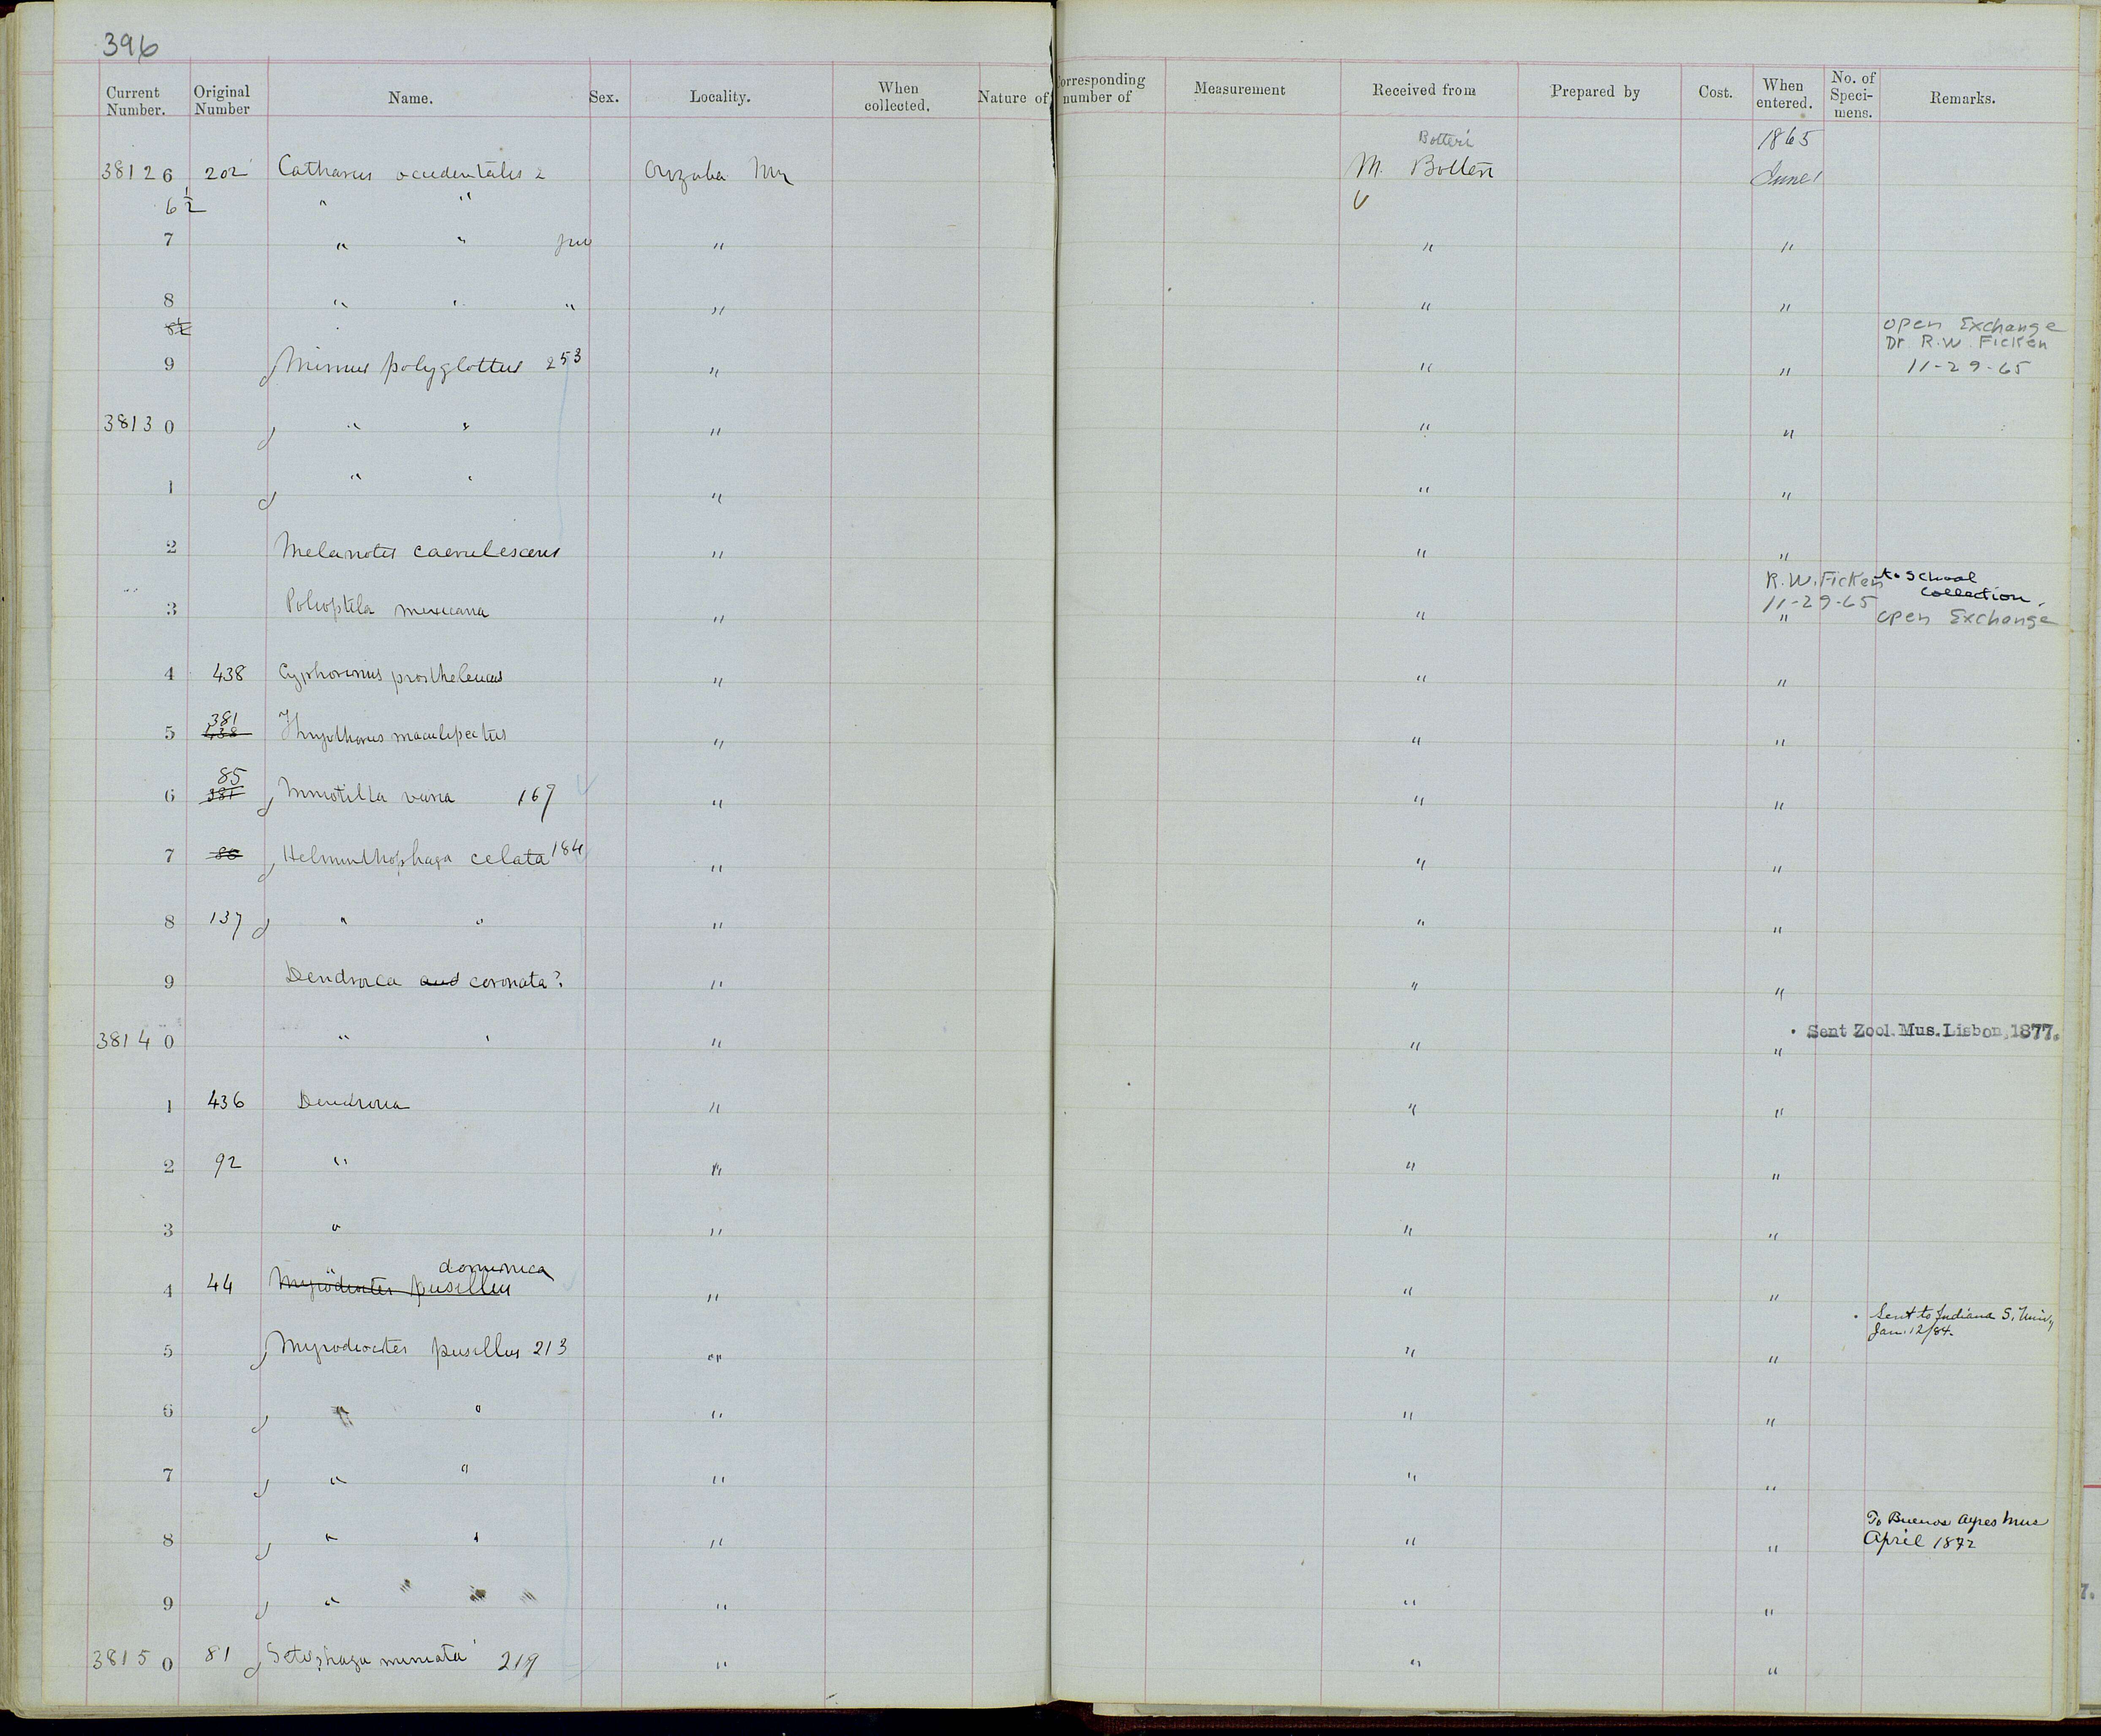 396
Current Number. Original Number Name. Sex. Locality. When collected. Nature of Corresponding number of Measurement Received from Prepared by Cost. When entered. No. of Speci-mens. Remarks.
Botteri 1865
38126 202 Catharus occidentalis 2 Orizaba M. Botteri June 1
6½ " " v
7 " " juv " " "
8 " " " " " "
8½
open Exchange
Dr R.W. Ficken
9 Mimus polyglottus 253 " " " 11-29-65
38130 " " " " "
1 " " " " "
2 Melanotis caerulescens " " "
R.W. Ficken to School
11-29-65 Collection.
3 Polioptila mexicana " " " open Exchange
4 438 Cyphorinus prostheleucus " " "
381
5 438 Thryothorus maculipectus " " "
85
6 381 Mniotilta varia 167 " " "
7 86 Helminthophaga celata 184 " " "
8 137 " " " " "
9 Dendroica aud coronata? " " "
38140 " " " " " Sent Zool. Mus. Lisbon, 1877.
1 436 Dendroica " " "
2 92 " " " "
3 " " " "
" dominica
4 44 Myiodioctes pusillus " " "
Sent to Indiana S. Univ,
Jan. 12/84.
5 Myiodioctes pusillus 213 " " "
6 " " " " "
7 " " " " "
To Buenos Ayres Mus
8 " " " " " April 1872
9 " " " " "
38150 81 Setophaga miniata 219 " " "